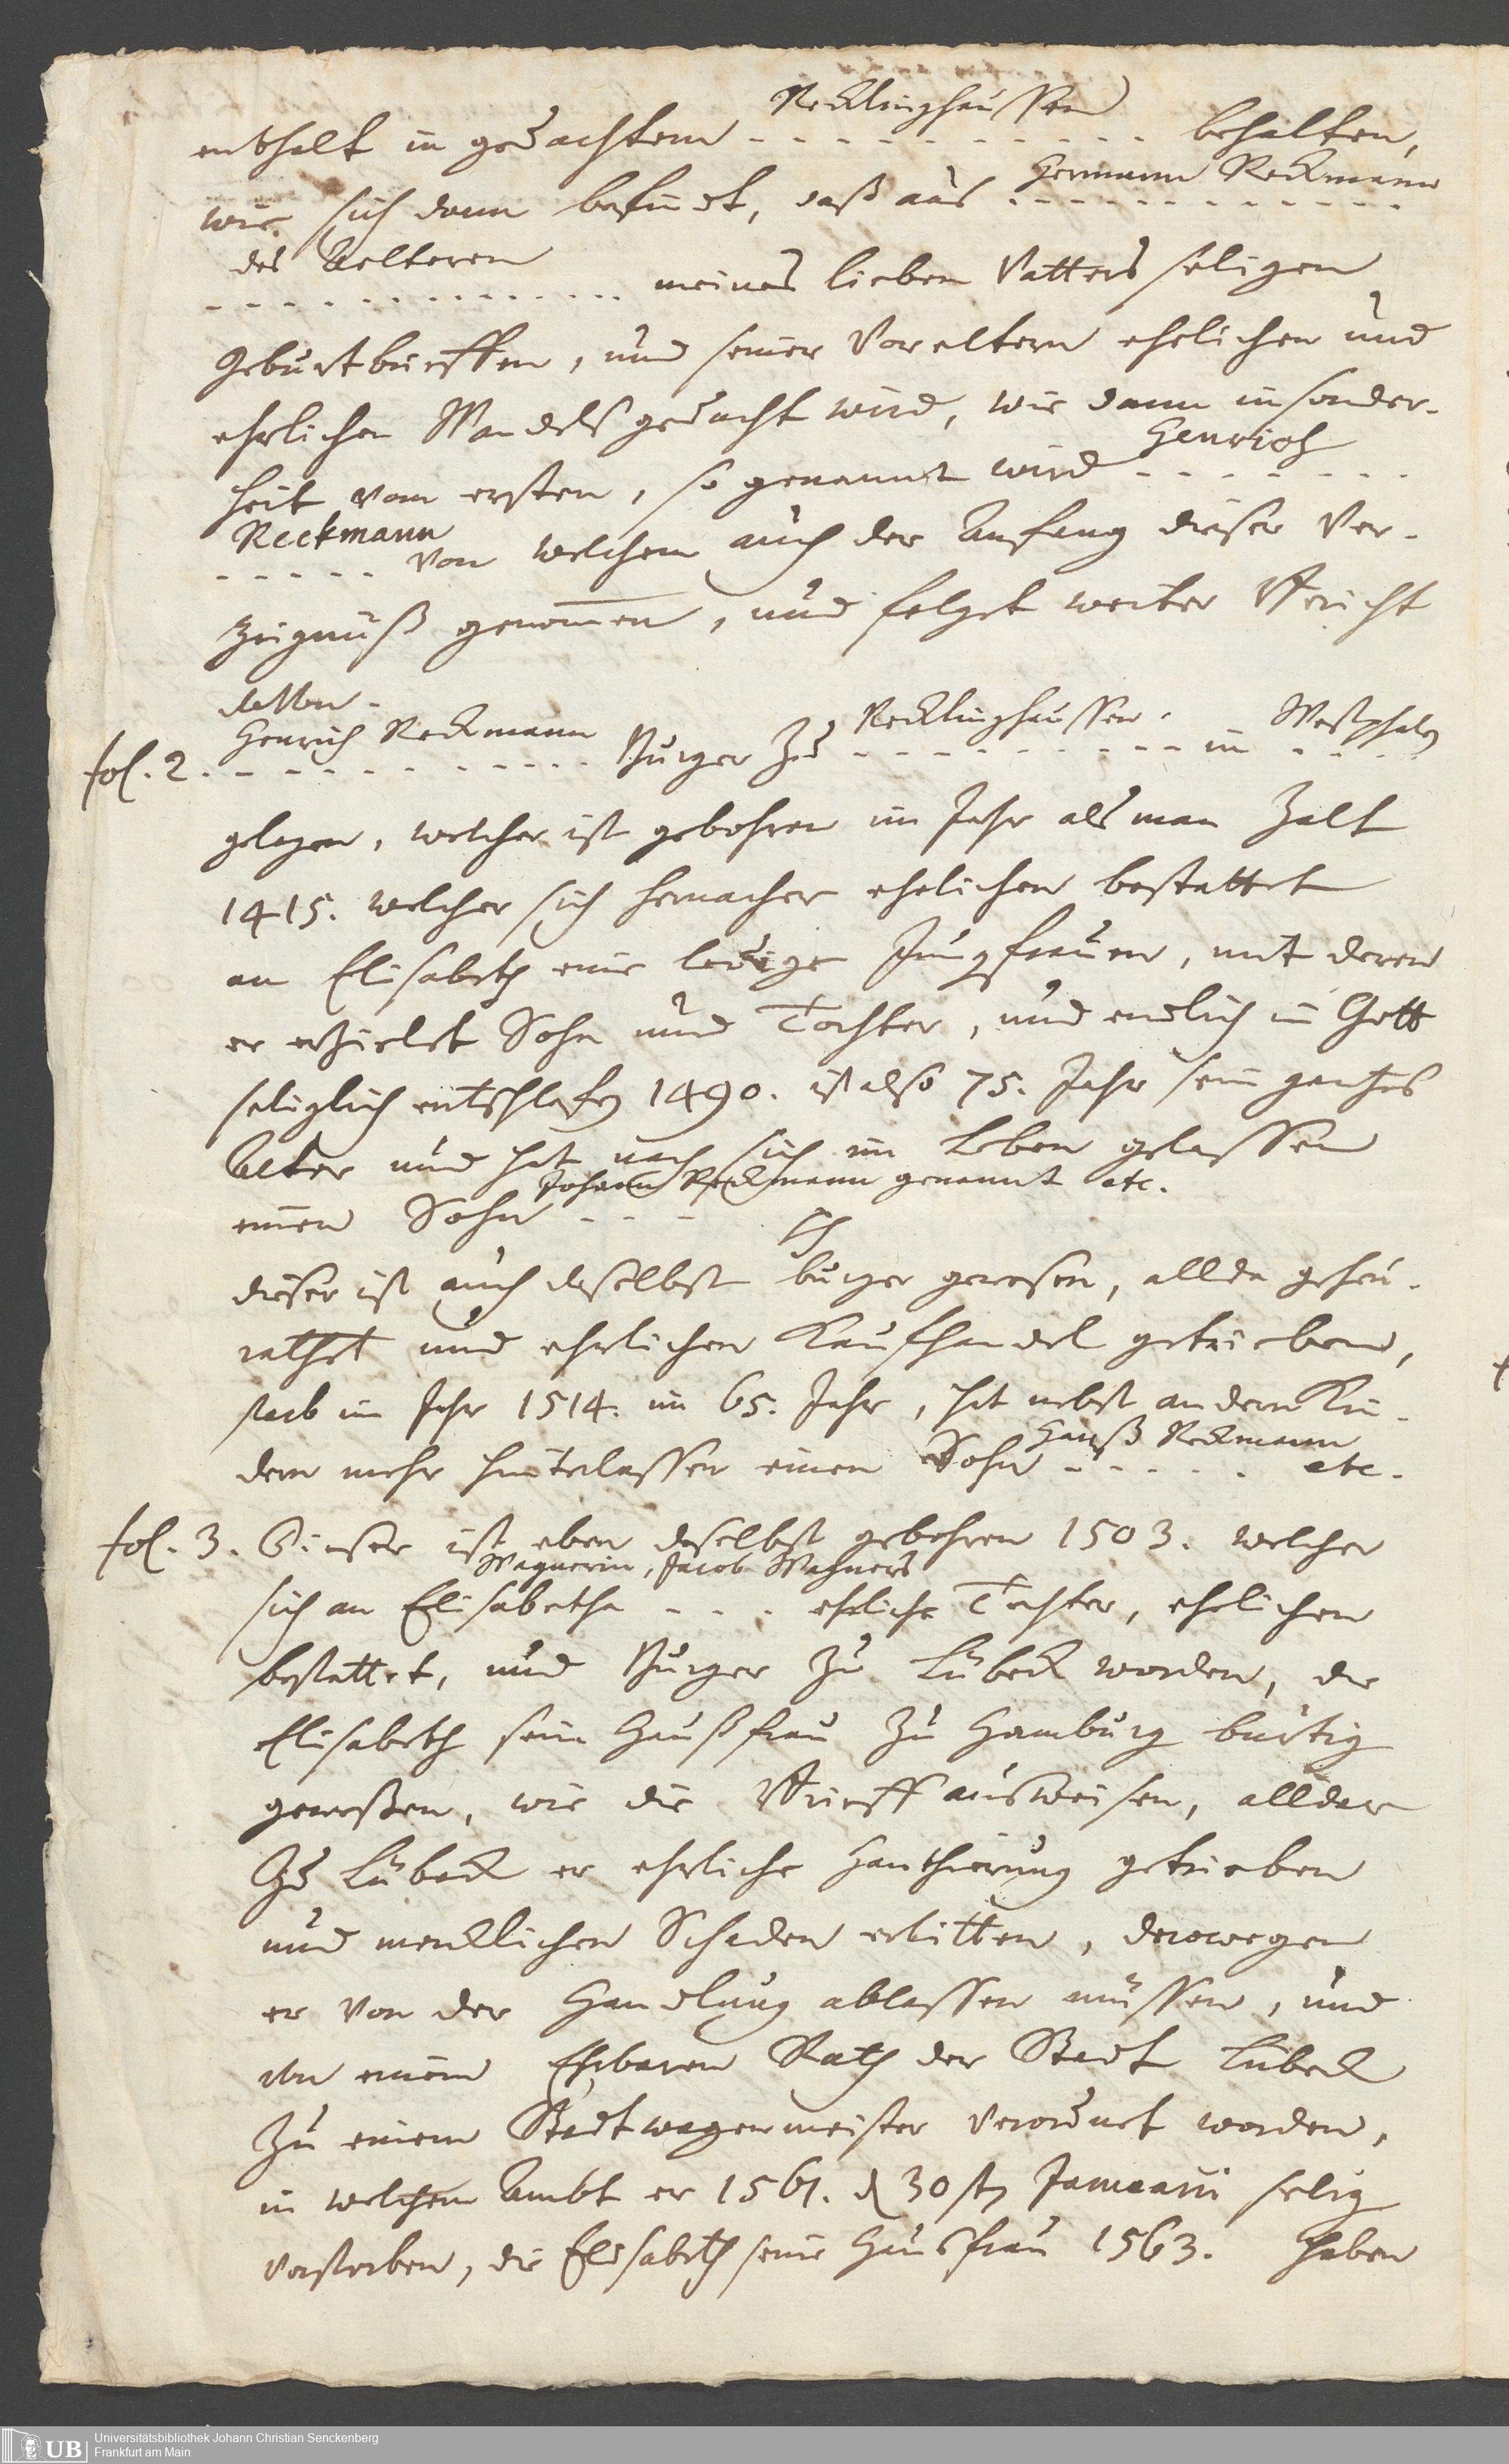 Recklinghaussen
enthalt in gedachtem - - - - - - - - - - - behalten,
Hermann Reckmann
wie sich dann befindt, daß aus - - - - - - - - - - - -
des Aelteren
- - - - - - - - - - - - - - meines lieben Vatters seligen
Geburtbrieffen, und seiner Voreltern ehelichen und
ehrlichen Wandels gedacht wird, wie dann insonder-
Henrich
heit vom ersten, so genannt wird - - - - - - -
Reckmann
- - - - - von welchem auch der Anfang dieser Ver-
zeignuß genommen, und folget weiter Bericht
davon.
Henrich Reckmann Recklinghaussen. Westphalen
fol. 2. - - - - - - - - - - - - Burger zu - - - - - - - - - - in - - - -
gelegen, welcher ist gebohren im Jahr als man zalt
1415. welcher sich hernacher ehelichen bestattet
an Elisabeth eine ledige Jungfrauen, mit deren
er erzielet Sohn und Tochter, und endlich in Gott
seliglich entschlafen 1490. ist also 75. Jahr sein gantzes
Alter und hat nach sich im Leben gelassen
Johann Reckmann genannt etc.
einen Sohn - - -
dieser ist auch daselbst burger gewesen, allda geheu-
rathet und ehrlichen Kaufhandel getrieben,
starb im Jahr 1514. im 65. Jahr, hat nebst andern Kin-
Hanß Reckmann
dern mehr hinterlassen einen Sohn - - - - - etc.
fol. 3. Dieser ist eben daselbst gebohren 1503. welcher
Wagnerin, Jacob Wagners
sich an Elisabetha - - - eheliche Tochter, ehelichen
bestattet, und Burger zu Lübeck worden, die
Elisabeth sein Haußfrau zu Hamburg burtig
geweßen, wie die Brieff ausweisen, allda er
Zu Lübeck er ehrliche Hanthierung getrieben
und mercklichen Schaden erlitten, derowegen
er von der Handlung ablassen müssen, und
von einem Ehrbaren Rath der Stadt Lübeck
zu einem Stadtwagenmeister verordnet worden,
in welchem Ambt er 1561. d 30ten Januarii selig
verstorben, die Elisabeth seine Hausfrau 1563. haben
UB Universitätsbibliothek Johann Christian Senckenberg
Frankfurt am Main